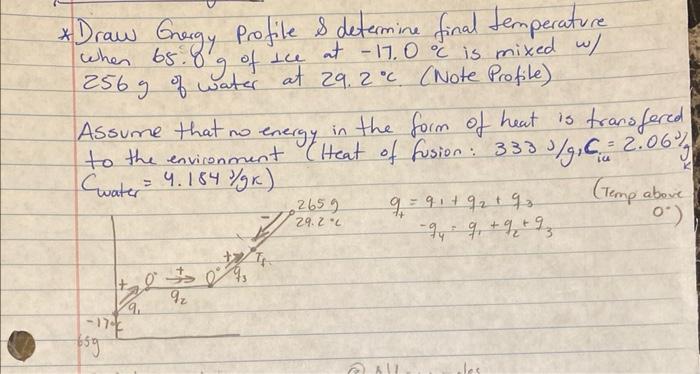 *Draw Energy Profile & determine final temperature
when 65.8 g of Ice at -17.0 °C is mixed w/
256 g of water at 29.2 °C. (Note Profile)
Assume that no energy in the form of heat is transfered
to the environment (Heat of fusion: 333 J/g, Cice = 2.06 J/gK
Cwater = 4.184 J/gK)
(Temp above 0°)
q+ = q1 + q2 + q3
-q4 = q1 + q2 + q3
265 g
29.2 °C
- 
+ Tf
+ 0° + 0° q3
q1 q2
-17°C
65g